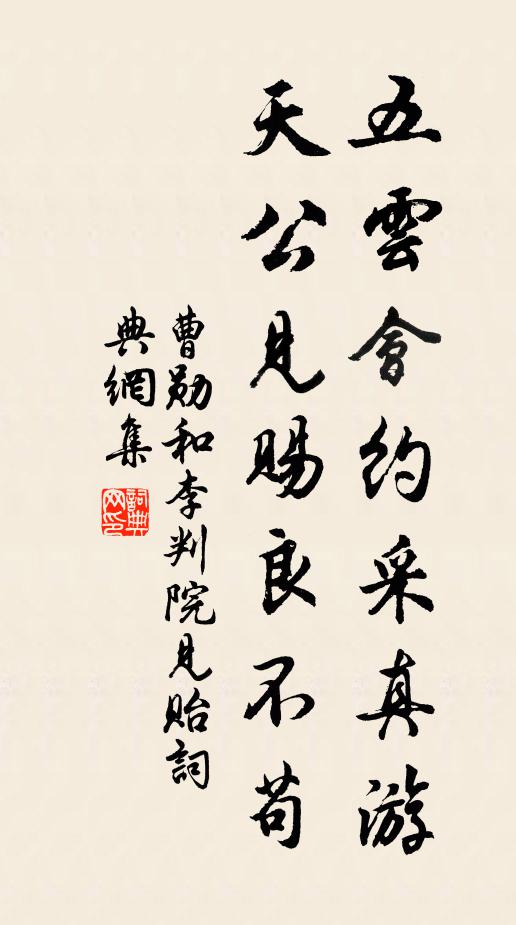 五雲會約采真游
天公見賜良不苟
曹勛和李判院見貽詞
典網集
詞典網印